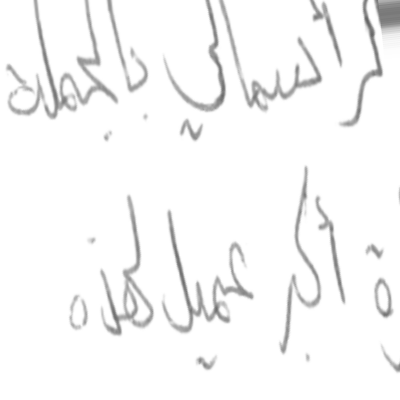 رأسمالي بالجملة
ة أكبر عميل لهذه